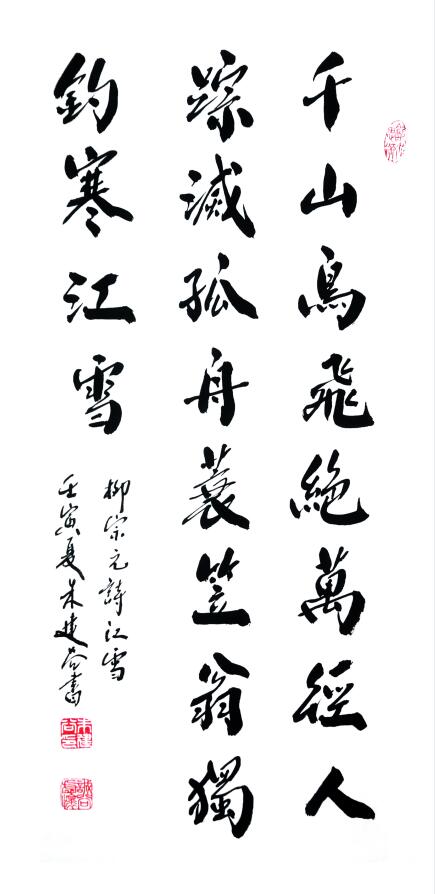 千山鳥飛絶萬徑人
踪滅孤舟蓑笠翁獨
釣寒江雪
柳宗元詩江雪
壬寅夏朱建谷書